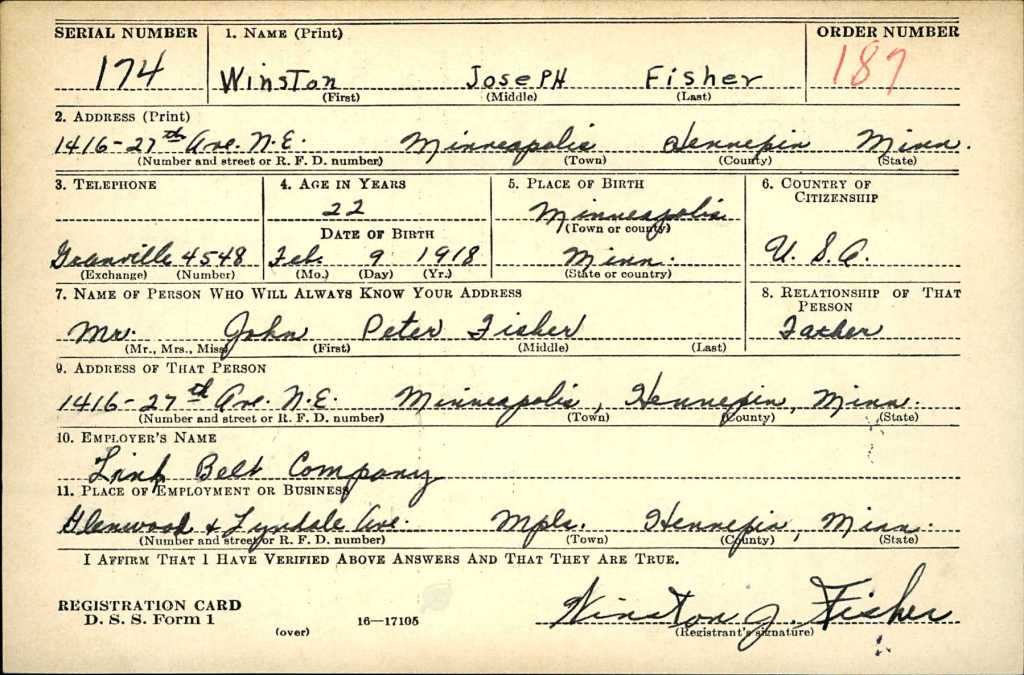 SERIAL NUMBER 1. NAME (Print) ORDER NUMBER
174 Winston Joseph Fisher 187
(First) (Middle) (Last)
2. ADDRESS (Print)
1416-27th Ave. N.E. Minneapolis Hennepin Minn.
(Number and street or R. F. D. number) (Town) (County) (State)
3. TELEPHONE 4. AGE IN YEARS 5. PLACE OF BIRTH 6. COUNTRY OF CITIZENSHIP
22 Minneapolis
(Town or county)
DATE OF BIRTH
Granville 4548 Feb. 9 1918 Minn. U. S. A.
(Exchange) (Number) (Mo.) (Day) (Yr.) (State or country)
7. NAME OF PERSON WHO WILL ALWAYS KNOW YOUR ADDRESS 8. RELATIONSHIP OF THAT PERSON
Mr. John Peter Fisher Father
(Mr., Mrs., Miss) (First) (Middle) (Last)
9. ADDRESS OF THAT PERSON
1416-27th Ave. N.E. Minneapolis, Hennepin, Minn.
(Number and street or R. F. D. number) (Town) (County) (State)
10. EMPLOYER'S NAME
Link Belt Company
11. PLACE OF EMPLOYMENT OR BUSINESS
Glenwood & Lyndale Ave. Mpls. Hennepin, Minn.
(Number and street or R. F. D. number) (Town) (County) (State)
I AFFIRM THAT I HAVE VERIFIED ABOVE ANSWERS AND THAT THEY ARE TRUE.
REGISTRATION CARD
D. S. S. Form 1
(over) 16—17105 Winston J. Fisher
(Registrant's signature)